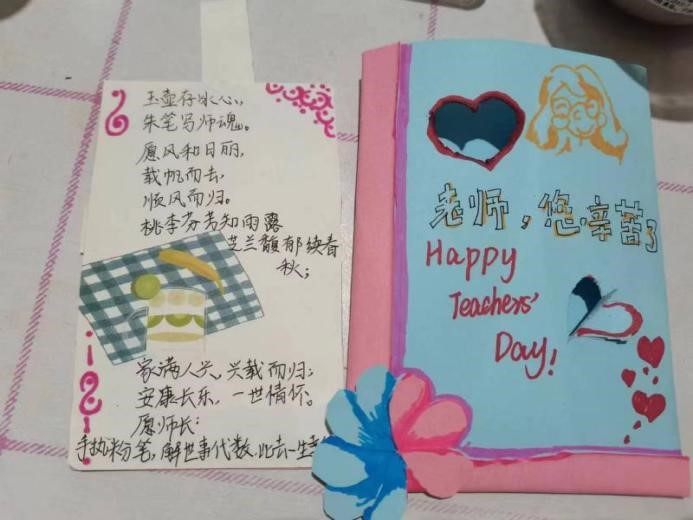 玉壶存冰心，
朱笔写师魂。
愿风和日丽，
载帆而去，
顺风而归。
桃李芬芳知雨露
芝兰馥郁续春
秋；
家满人兴、兴载而归；
安康长乐，一世情怀。
愿师长：
手执粉笔，解世事代数，此去一生
老师，您辛苦了
Happy
Teachers'
Day!